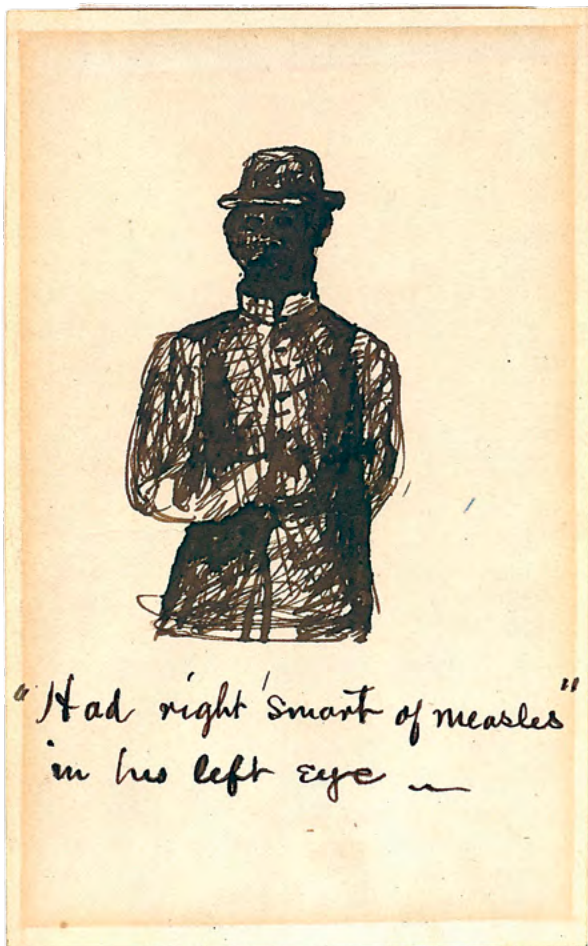 "Had right smart of measles"
in his left eye —